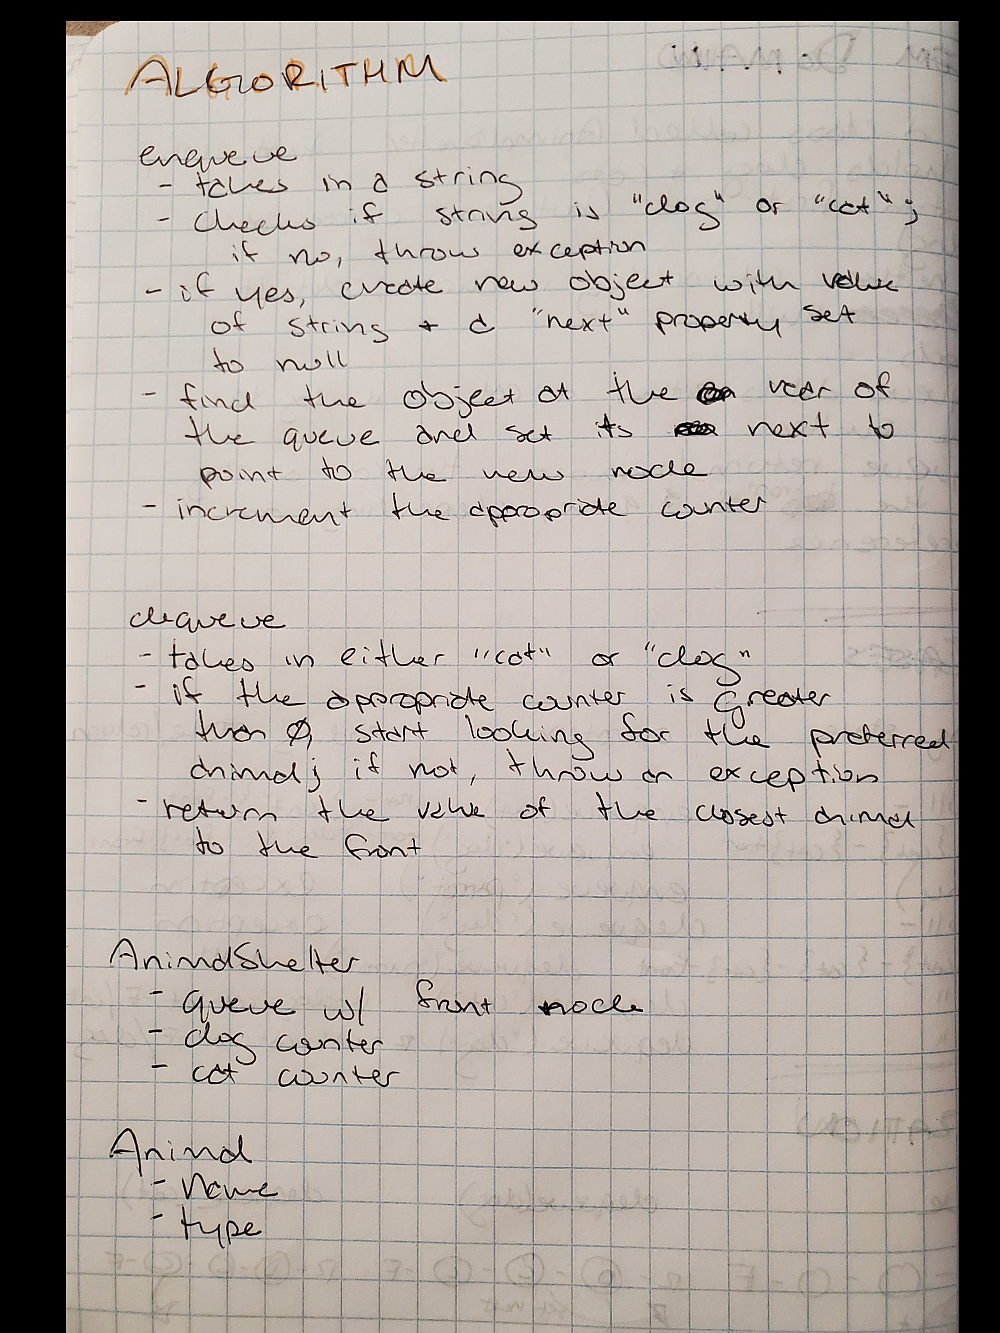 ALGORITHM
enqueue
- takes in a string
- checks if string is "dog" or "cat";
if no, throw exception
- if yes, create new object with value
of string + a "next" property set
to null
- find the object at the rear of
the queue and set its next to
point to the new node
- increment the appropriate counter
dequeue
- takes in either "cat" or "dog"
- if the appropriate counter is greater
than 0, start looking for the preferred
animal; if not, throw an exception
- return the value of the closest animal
to the front
AnimalShelter
- queue w/ front node
- dog counter
- cat counter
Animal
- name
- type